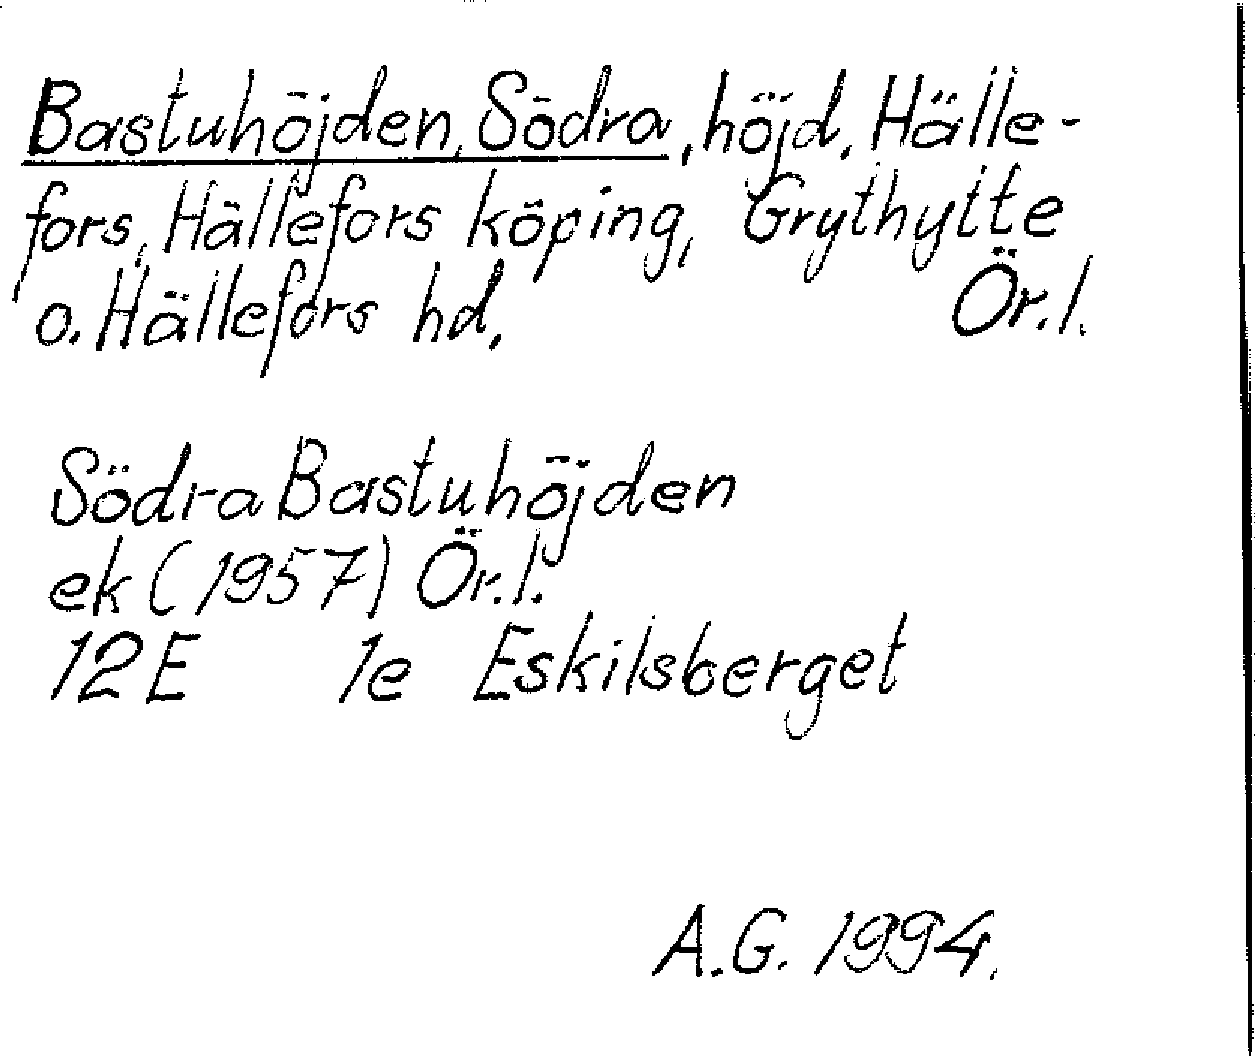 Bastuhöjden, Södra, höjd, Hälle-
fors, Hällefors köping, Grythytte
o. Hällefors hd, Ör.l.
Södra Bastuhöjden
ek (1957) Ör.l.
12E 1e Eskilsberget
A.G. 1994.